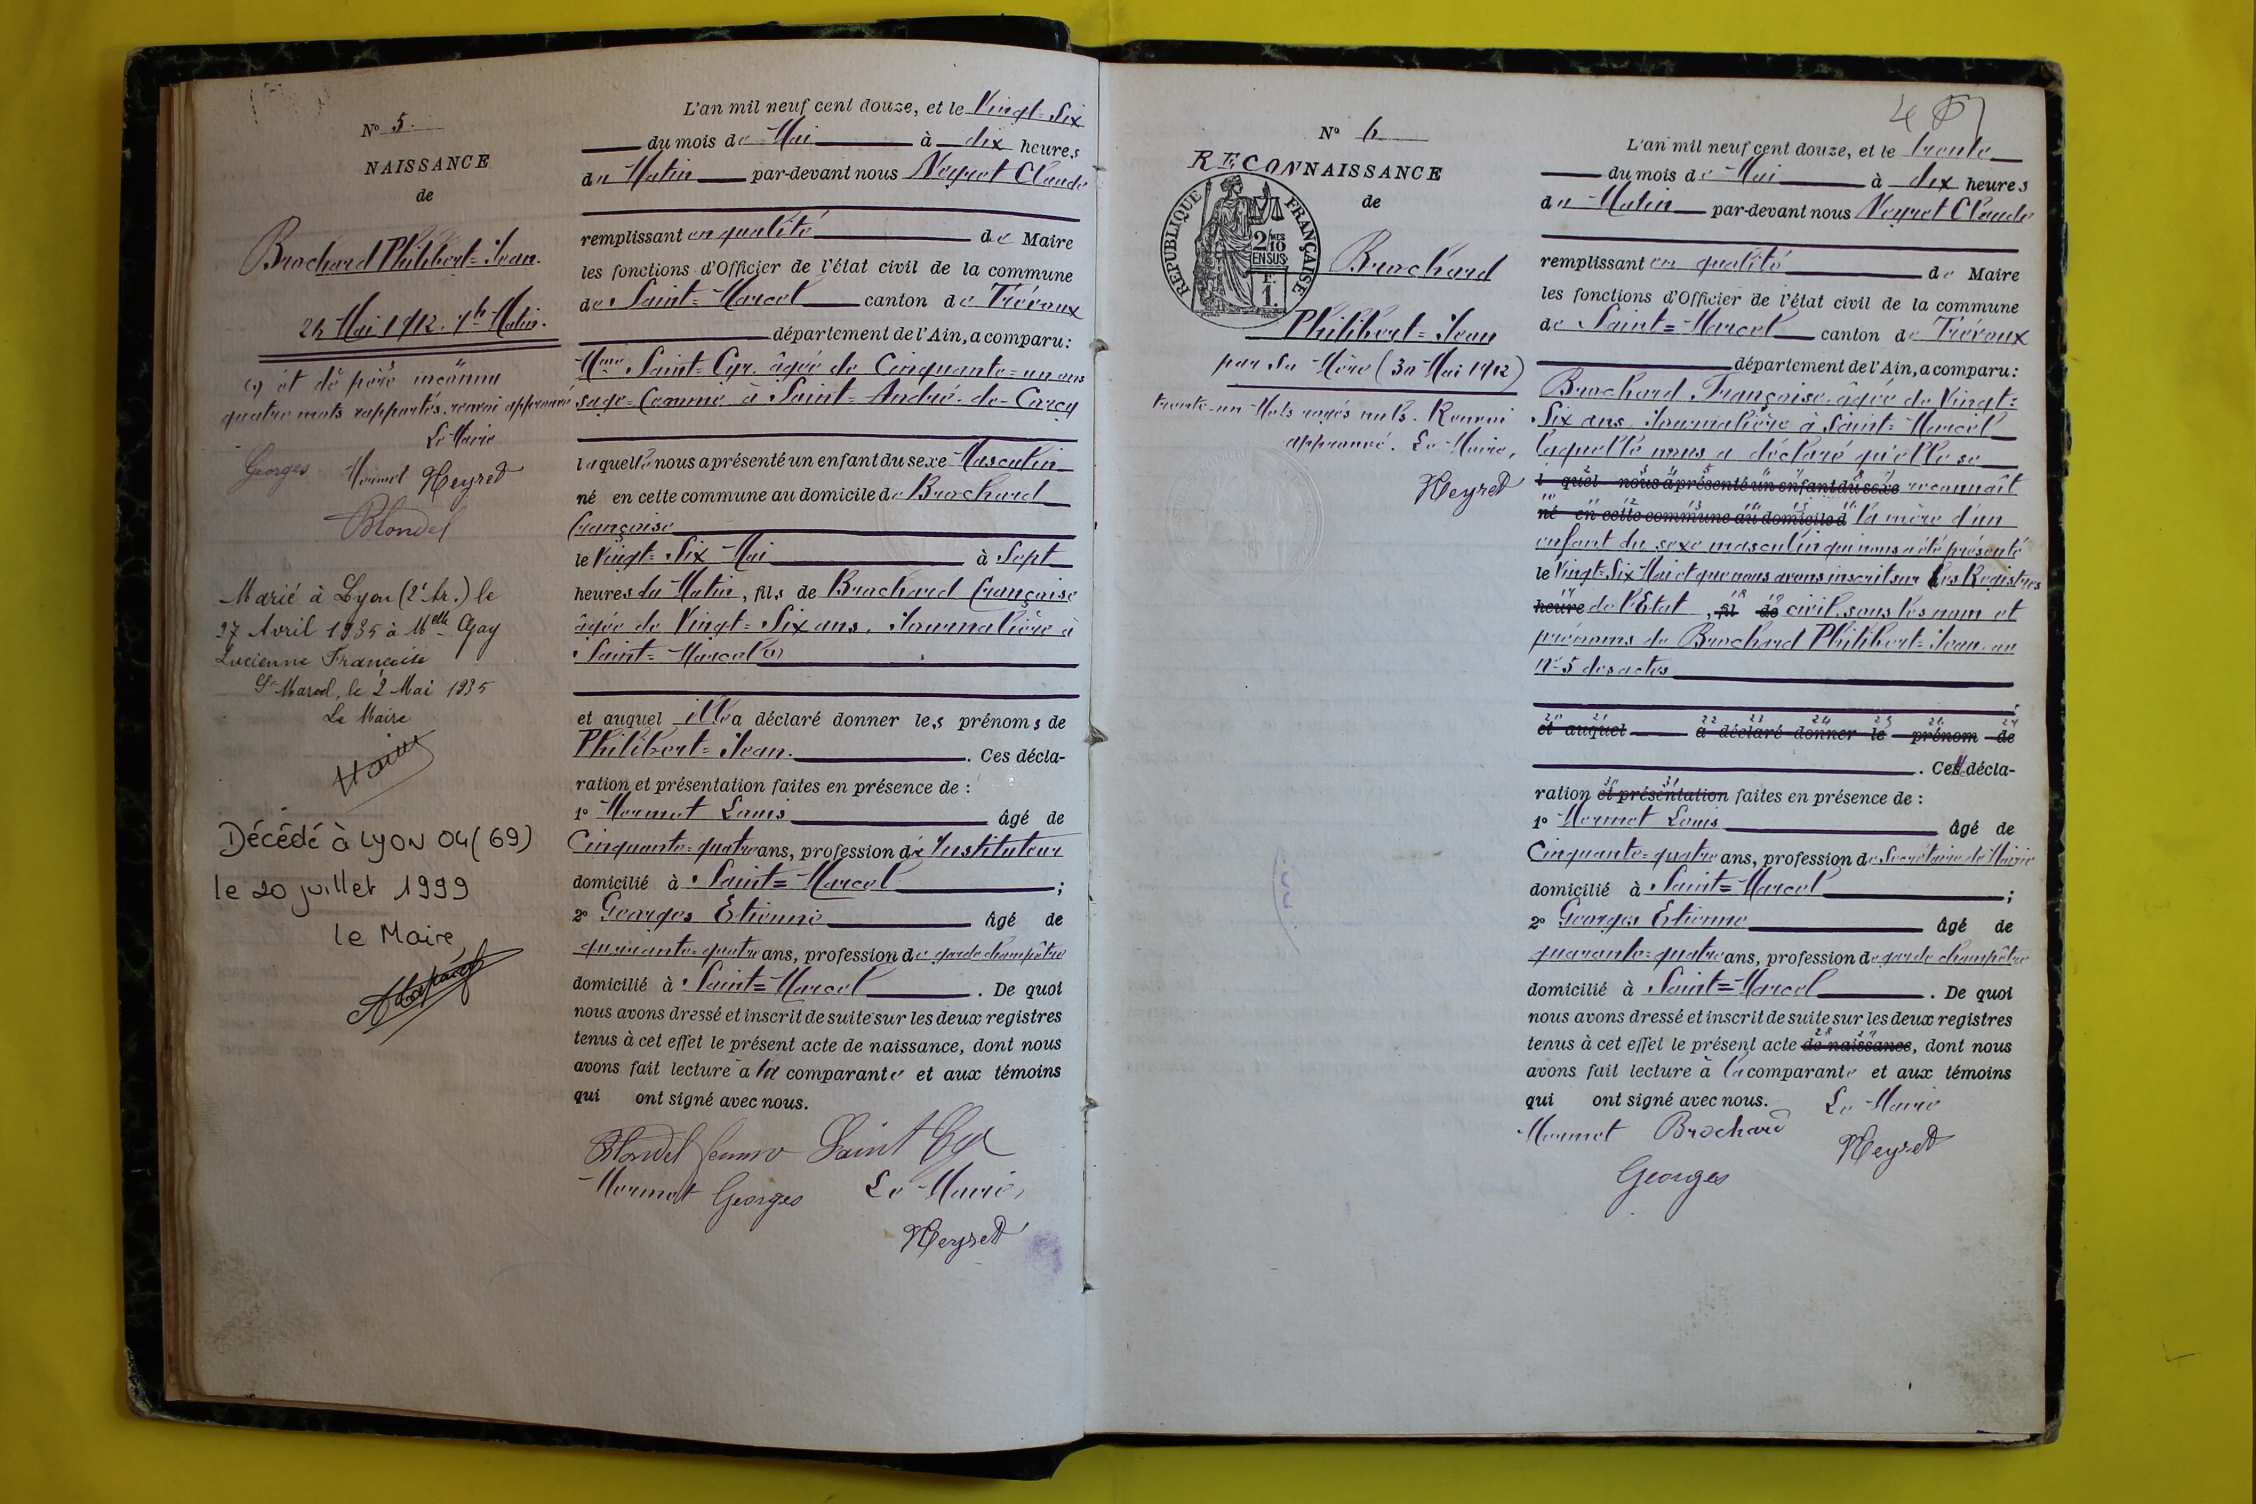 N° 5
NAISSANCE
de
Brochard Philibert=Jean.
26 Mai 1912. 7h Matin.
(1) et de père inconnu
quatre mots rapportés, renvoi approuvé
Le Maire
Georges Mermet Neyret
Blondel
Marié à Lyon (2e Ar.) le
27 Avril 1935 à Melle Gay
Lucienne Françoise
St Marcel, le 2 Mai 1935
Le Maire
Décédé à Lyon 04 (69)
le 20 juillet 1999
le Maire,
L'an mil neuf cent douze, et le Vingt=Six
du mois de Mai à dix heures
du Matin par-devant nous Neyret Claude
remplissant en qualité de Maire
les fonctions d'Officier de l'état civil de la commune
de Saint=Marcel canton de Trévoux
département de l'Ain, a comparu:
Mme Saint=Cyr. âgée de Cinquante=un ans
sage=femme à Saint=André-de-Corcy
laquelle nous a présenté un enfant du sexe Masculin
né en cette commune au domicile de Brochard
françoise
le Vingt=Six Mai à Sept
heures du Matin, fils de Brochard françoise
âgée de Vingt=Six ans, Journalière à
Saint=Marcel (1)
et auquel elle a déclaré donner les prénoms de
Philibert=Jean. . Ces décla-
ration et présentation faites en présence de :
1° Mermet Louis âgé de
Cinquante=quatre ans, profession de Instituteur
domicilié à Saint=Marcel ;
2° Georges Etienne âgé de
quarante=quatre ans, profession de garde champêtre
domicilié à Saint=Marcel . De quoi
nous avons dressé et inscrit de suite sur les deux registres
tenus à cet effet le présent acte de naissance, dont nous
avons fait lecture à la comparante et aux témoins
qui ont signé avec nous.
Blondel femme Saint Cyr
Mermet Georges Le Maire,
Neyret
N° 6
RECONNAISSANCE
de
RÉPUBLIQUE FRANÇAISE
2/10 MES
EN SUS
F.
1.
Brochard
Philibert=Jean
par sa Mère (30 Mai 1912)
trente-un Mots rayés nuls. Renvoi
approuvé. Le Maire,
Neyret
L'an mil neuf cent douze, et le trente
du mois de Mai à dix heures
du Matin par-devant nous Neyret Claude
remplissant en qualité de Maire
les fonctions d'Officier de l'état civil de la commune
de Saint=Marcel canton de Trévoux
département de l'Ain, a comparu:
Brochard Françoise âgée de Vingt=
Six ans Journalière à Saint=Marcel
laquelle nous a déclaré qu'elle se
l quel nous a présenté un enfant du sexe reconnaît
né en cette commune au domicile d la mère d'un
enfant du sexe masculin qui nous a été présenté
le Vingt=Six Mai et que nous avons inscrit sur les Registres
heure de l'Etat , fil de civil sous les nom et
prénoms de Brochard Philibert=Jean au
N° 5 des actes
et auquel a déclaré donner le prénom de
. Cette décla-
ration et présentation faites en présence de :
1° Mermet Louis âgé de
Cinquante=quatre ans, profession de Secrétaire de Mairie
domicilié à Saint=Marcel ;
2° Georges Etienne âgé de
quarante=quatre ans, profession de garde champêtre
domicilié à Saint=Marcel . De quoi
nous avons dressé et inscrit de suite sur les deux registres
tenus à cet effet le présent acte de naissance, dont nous
avons fait lecture à la comparante et aux témoins
qui ont signé avec nous. Le Maire
Mermet Brochard Neyret
Georges